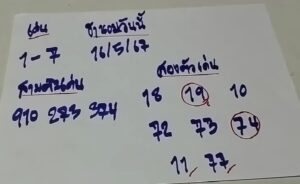 เด่น
1-7
ชานมวันนี้
16/5/67
สามตัวเด่น
910 273 374
สองตัวเด่น
18 19 10
72 73 74
11 77